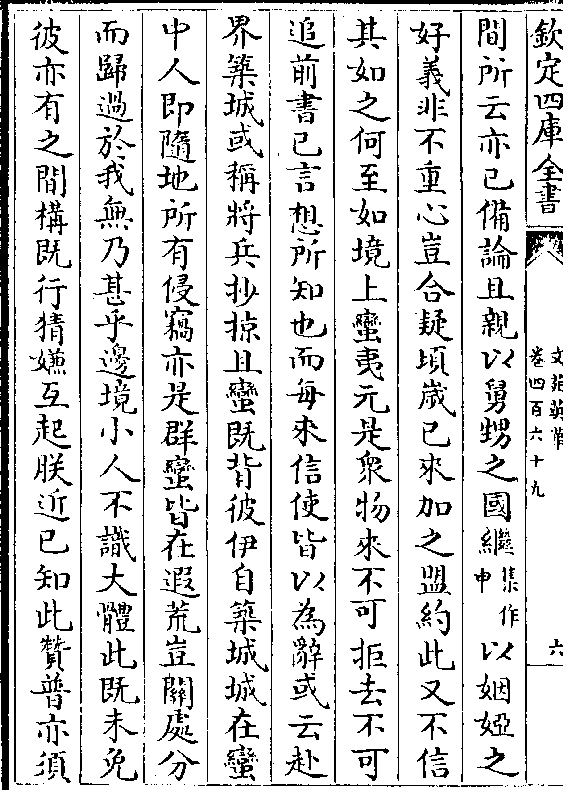 欽定四庫全書
文苑英華
卷四百六十九
六
間所云亦已備論且親以舅甥之國繼集作申以姻婭之
好義非不重心豈合疑頃歲已來加之盟約此又不信
其如之何至如境上蠻夷元是衆物來不可拒去不可
追前書已言想所知也而每來信使皆以為辭或云赴
界築城或稱將兵抄掠且蠻既背彼伊自築城城在蠻
中人即隨地所有侵竊亦是群蠻皆在遐荒豈關處分
而歸過於我無乃甚乎邊境小人不識大體此既未免
彼亦有之間構既行猜嫌互起朕近已知此贊普亦須